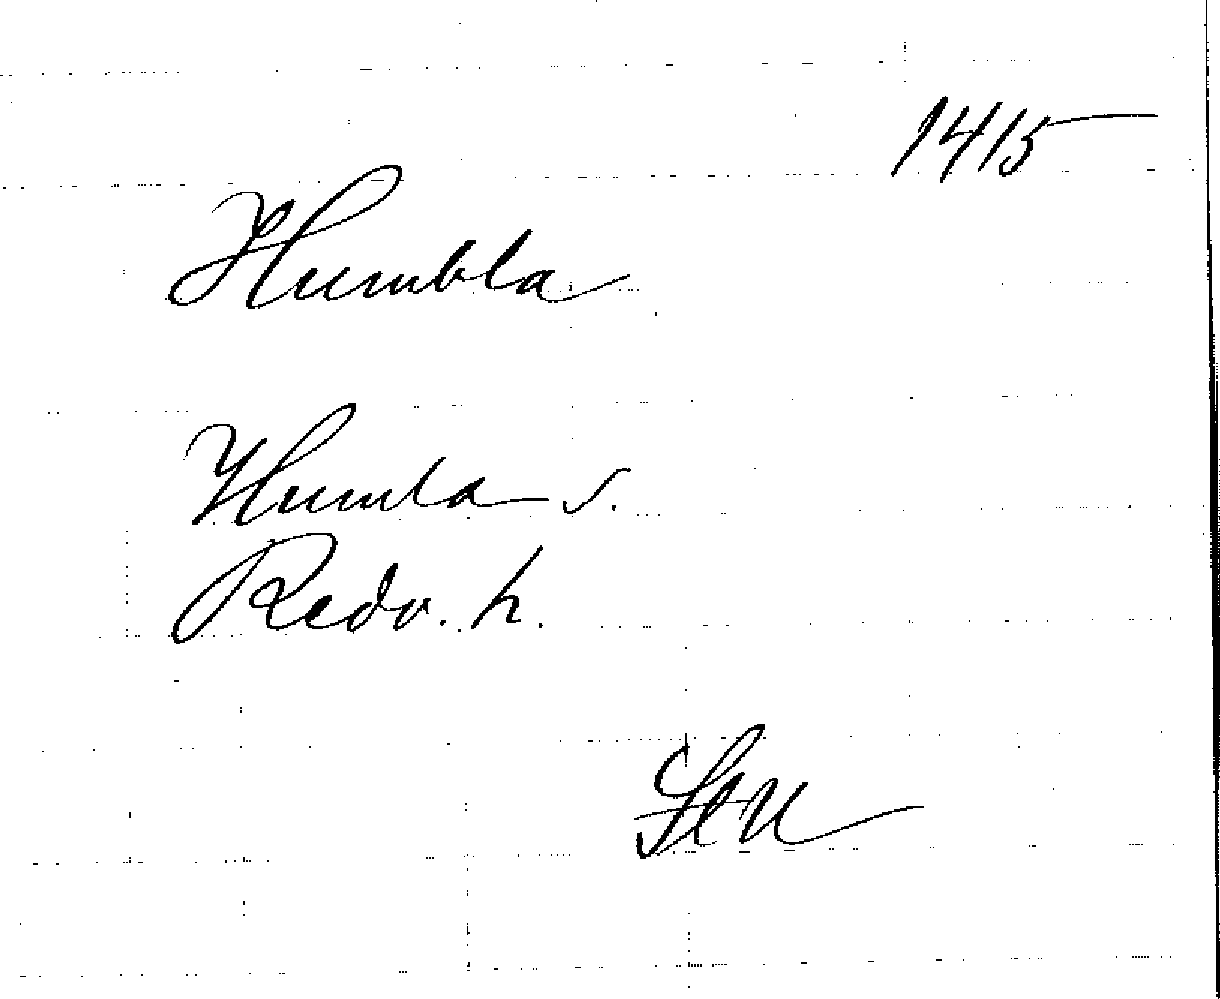 1415
Humbla
Humla s.
Redv. h.